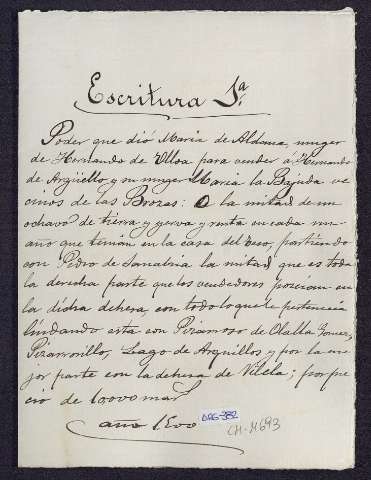 Escritura 1ª
Poder que dió Maria de Aldana, muger
de Hernando de Ulloa para vender á Hernando
de Argüello y su muger Maria la Bajuda ve
cinos de las Brozas: O la mitad de un
ochavo de tierra y yerva y renta en cada un
año que tenian en la casa del Eco, partiendo
con Pedro de Sanabria la mitad que es toda
la derecha parte que los vendedores poseian en
la dicha dehesa, con todo lo que le pertenecia
lindando esta con Piramoso de Olalla Gomez,
Piramonillo, Lago de Arquillos y por la ma
jor parte con la dehesa de Vilela; por pre
cio de 10000 mar
año 1500
CH-M693